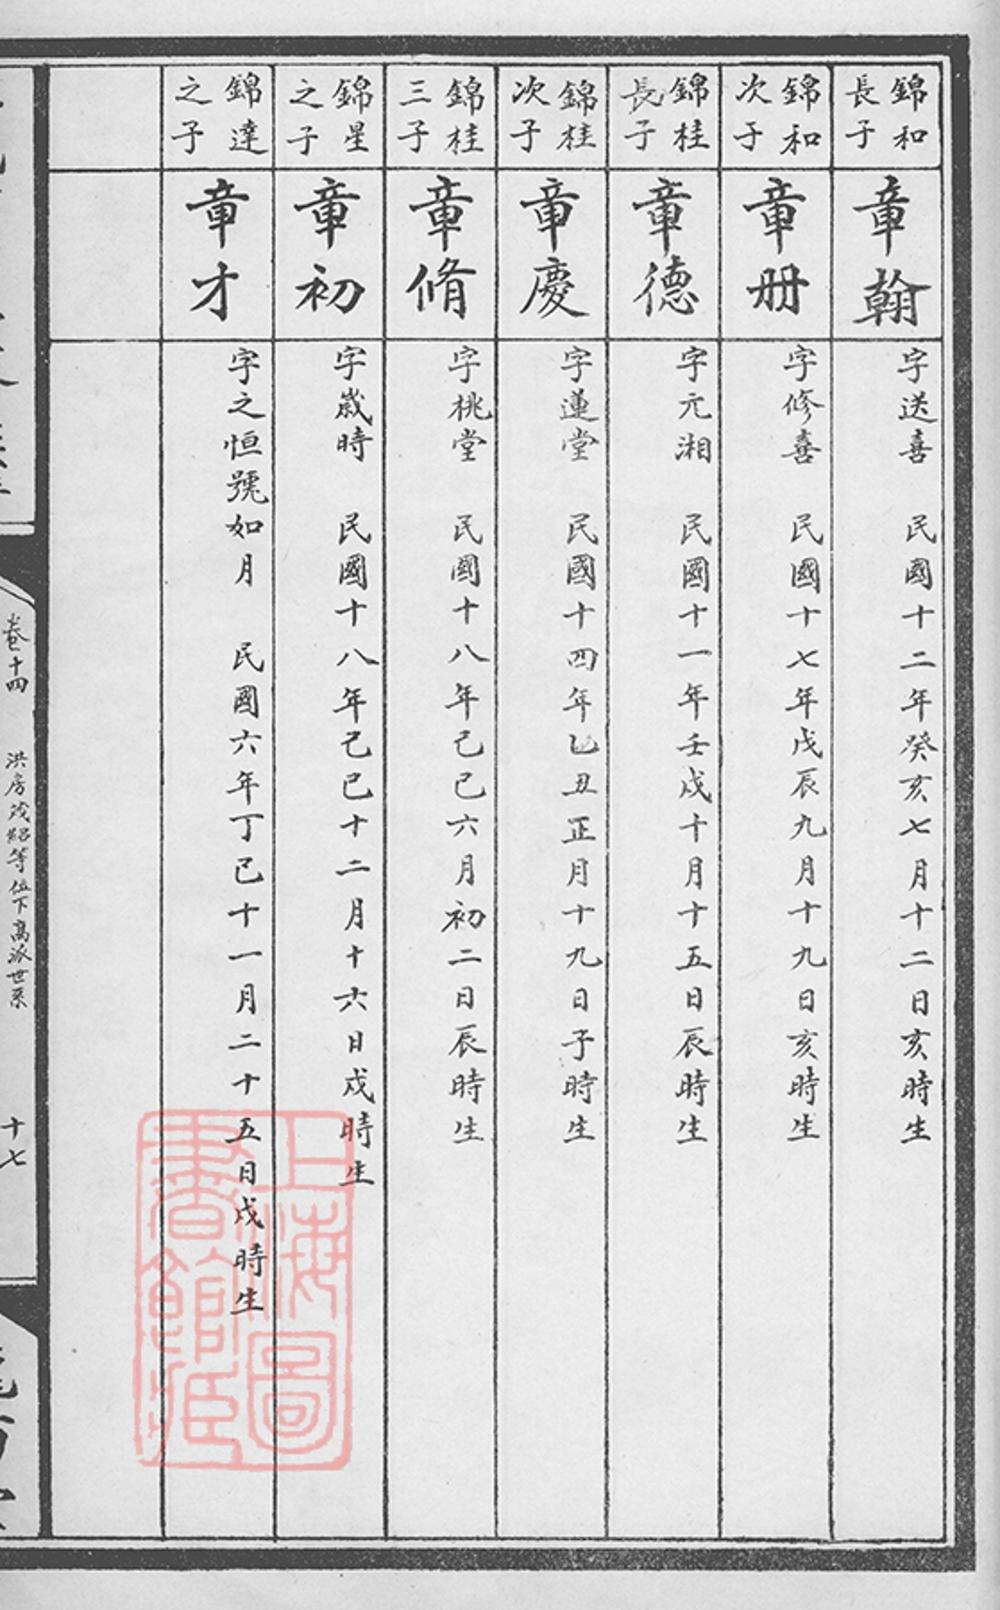 錦和
長子
章翰
字送喜　民國十二年癸亥七月十二日亥時生
錦和
次子
章册
字修喜　民國十七年戊辰九月十九日亥時生
錦桂
長子
章德
字亢湘　民國十一年壬戌十月十五日辰時生
錦桂
次子
章慶
字蓮堂　民國十四年乙丑正月十九日子時生
錦桂
三子
章脩
字桃堂　民國十八年己巳六月初二日辰時生
錦星
之子
章初
字歲時　民國十八年己巳十二月十六日戍時生
錦達
之子
章才
字之恒號如月　民國六年丁巳十一月二十五日戍時生
卷十四　洪房茂紹等位下高派世系
十七
上海圖
書館藏